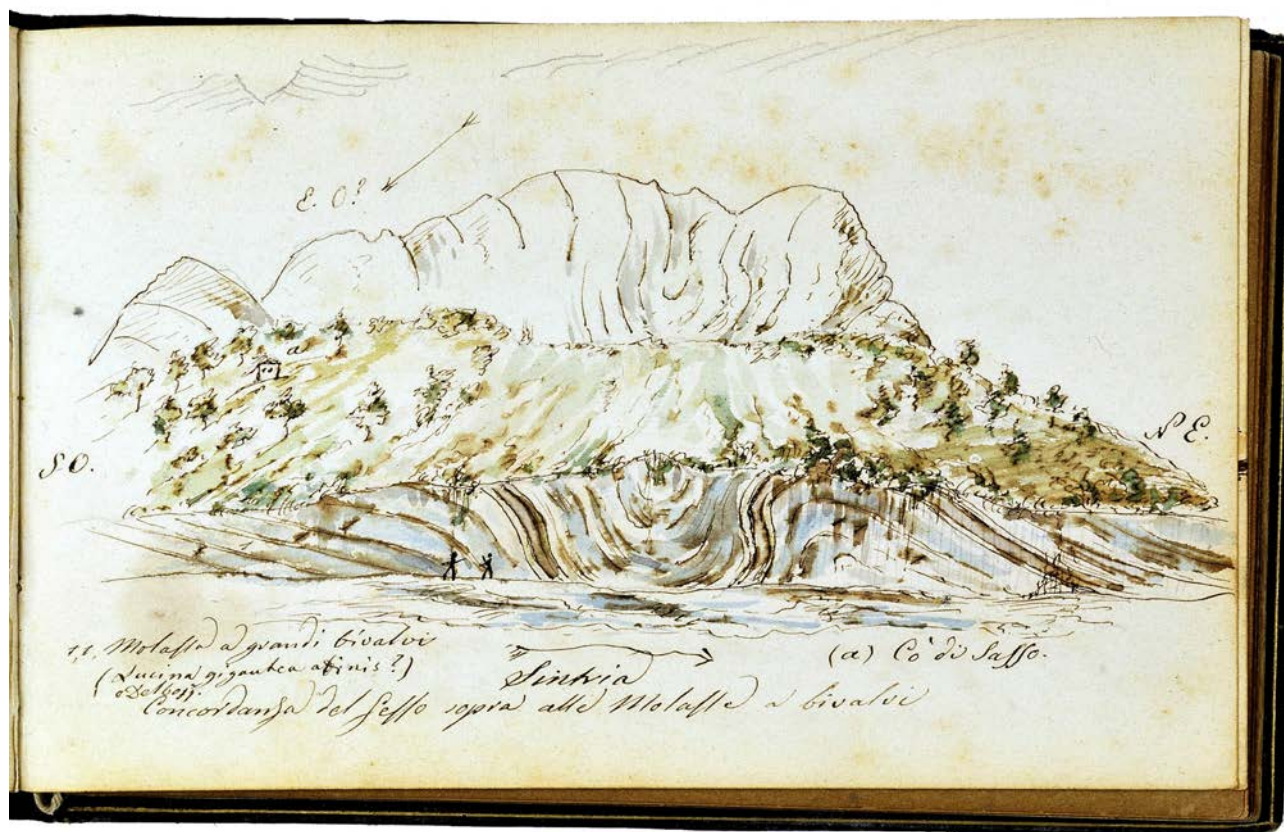 E. O?
a
S O.
N E.
1,1. Molassa a grandi bivalvi
(Lucina gigantea afinis?)
Desh
Sintria
(a) Co' di Sasso.
Concordanza del Gesso sopra alle Molasse a bivalvi